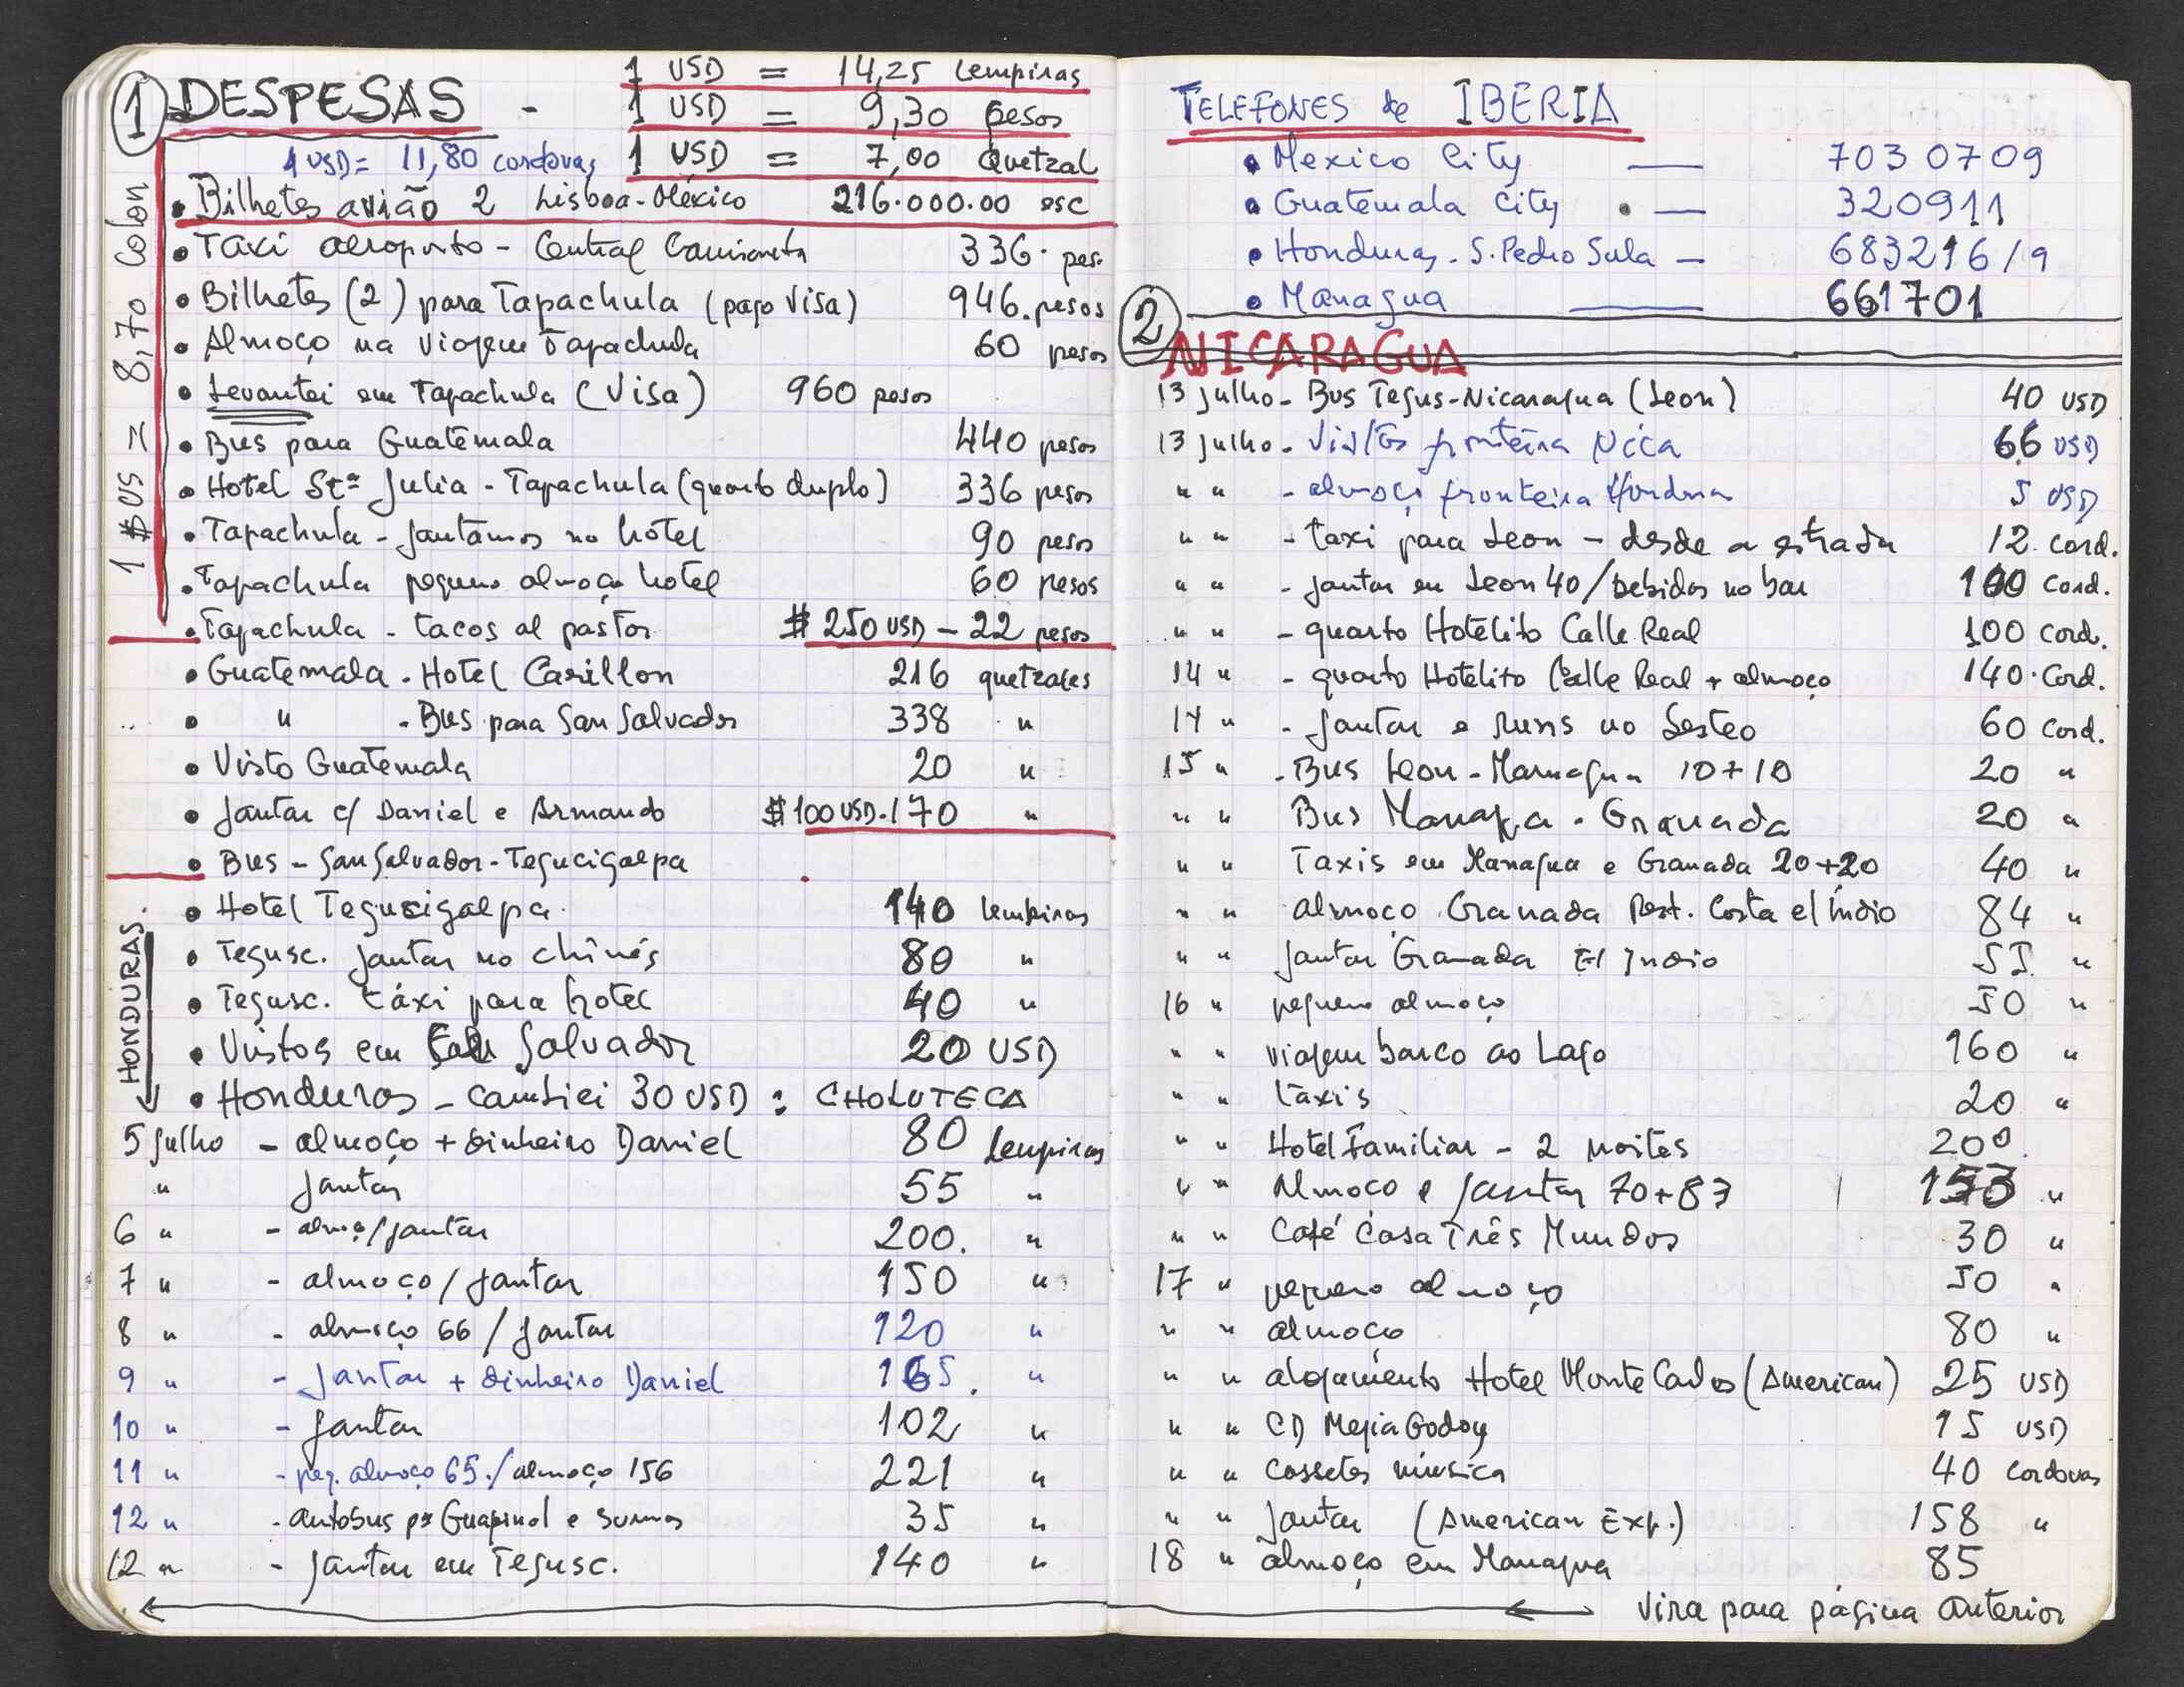 ① DESPESAS -
1 USD = 14,25 Lempiras
1 USD = 9,30 pesos
1 USD = 11,80 cordovas 1 USD = 7,00 Quetzal
1 $US = 8,70 Colon
• Bilhetes avião 2 Lisboa-México 216.000.00 esc
• Taxi aeroporto - Central Camioneta 336. pes.
• Bilhetes (2) para Tapachula (pago Visa) 946. pesos
• Almoço na viagem Tapachula 60 pesos
• Levantei em Tapachula (Visa) 960 pesos
• Bus para Guatemala 440 pesos
• Hotel Stª Julia - Tapachula (quarto duplo) 336 pesos
• Tapachula - Jantámos no hotel 90 pesos
• Tapachula pequeno almoço hotel 60 pesos
• Tapachula - tacos al pastor $ 250 USD - 22 pesos
• Guatemala - Hotel Carillon 216 quetzales
• " - Bus para San Salvador 338 "
• Visto Guatemala 20 "
• Jantar c/ Daniel e Armando $ 100 USD. 170 "
• Bus - San Salvador - Tegucigalpa
HONDURAS
• Hotel Tegucigalpa 140 lempiras
• Tegusc. jantar no chinês 80 "
• Tegusc. táxi para hotel 40 "
• Vistos em Salvador 20 USD
• Honduras - cambiei 30 USD : CHOLUTECA
5 Julho - almoço + dinheiro Daniel 80 Lempiras
" Jantar 55 "
6 " - almoço/jantar 200. "
7 " - almoço / jantar 150 "
8 " - almoço 66 / jantar 120 "
9 " - Jantar + dinheiro Daniel 165. "
10 " - Jantar 102 "
11 " - peq. almoço 65./almoço 156 221 "
12 " - autobus pª Guapinol e 35 "
12 " - jantar em Tegusc. 140 "
TELEFONES de IBERIA
• Mexico City — 7030709
• Guatemala City • — 320911
• Honduras - S. Pedro Sula — 683216/9
• Managua — 661701
② NICARAGUA
13 julho - Bus Tegus-Nicaragua (Leon) 40 USD
13 julho - Vistos fronteira Nica 66 USD
" " - almoço fronteira Honduras 5 USD
" " - taxi para Leon - desde a estrada 12 Cord.
" " - jantar em Leon 40/bebidas no bar 100 Cord.
" " - quarto Hotelito Calle Real 100 Cord.
14 " - quarto Hotelito Calle Real + almoço 140. Cord.
14 " - jantar e no Sesteo 60 Cord.
15 " - Bus Leon - Managua 10+10 20 "
" " Bus Managua - Granada 20 "
" " Taxis em Managua e Granada 20+20 40 "
" " almoço Granada Rest. Costa el Índio 84 "
" " jantar Granada El Indio 55 "
16 " pequeno almoço 50 "
" " viagem barco ao Lago 160 "
" " táxis 20 "
" " Hotel Familiar - 2 noites 200.
" " Almoço e Jantar 70+83 153 "
" " Café Casa Três Mundos 30 "
17 " pequeno almoço 50 "
" " almoço 80 "
" " alojamento Hotel Monte Carlos (American) 25 USD
" " CD Mejia Godoy 15 USD
" " Cassetes música 40 cordovas
" " Jantar (American Exp.) 158 "
18 " almoço em Managua 85
← Vira para página anterior